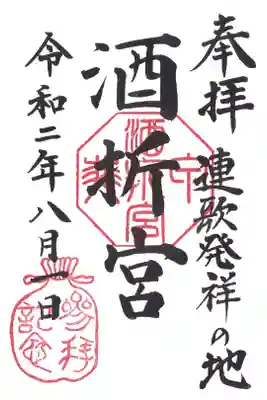 奉拝 連歌発祥の地
酒折宮
令和二年八月一日
参拝記念